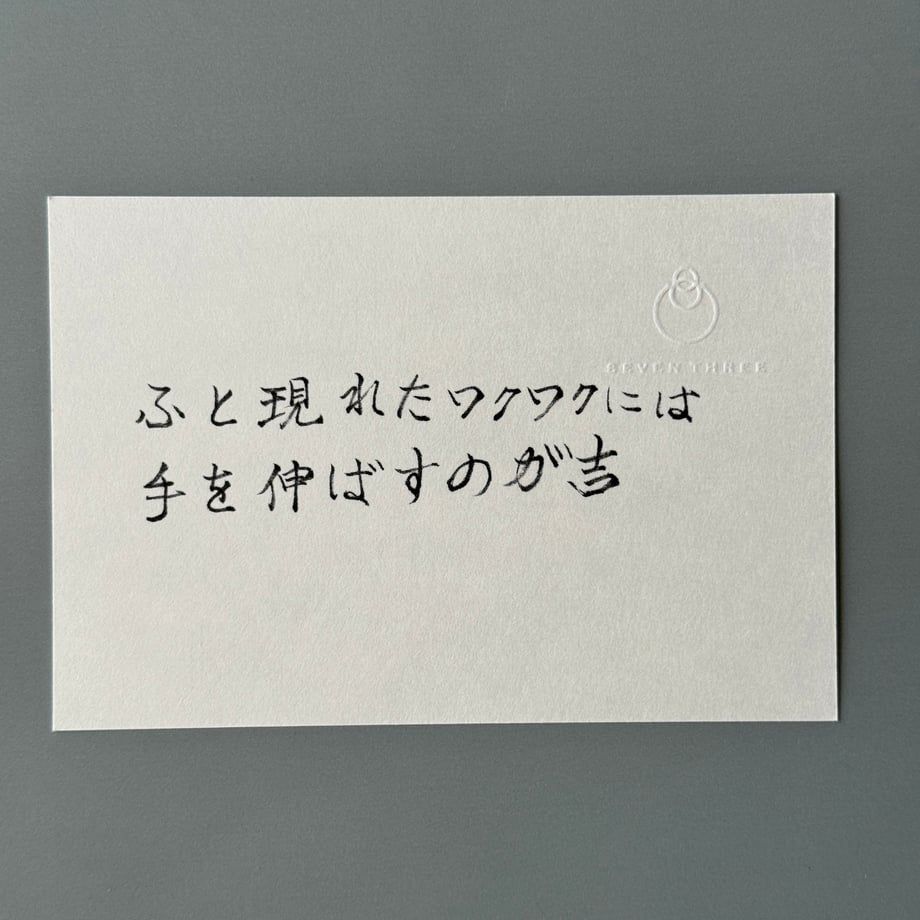 SEVEN THREE
ふと現れたワクワクには
手を伸ばすのが吉